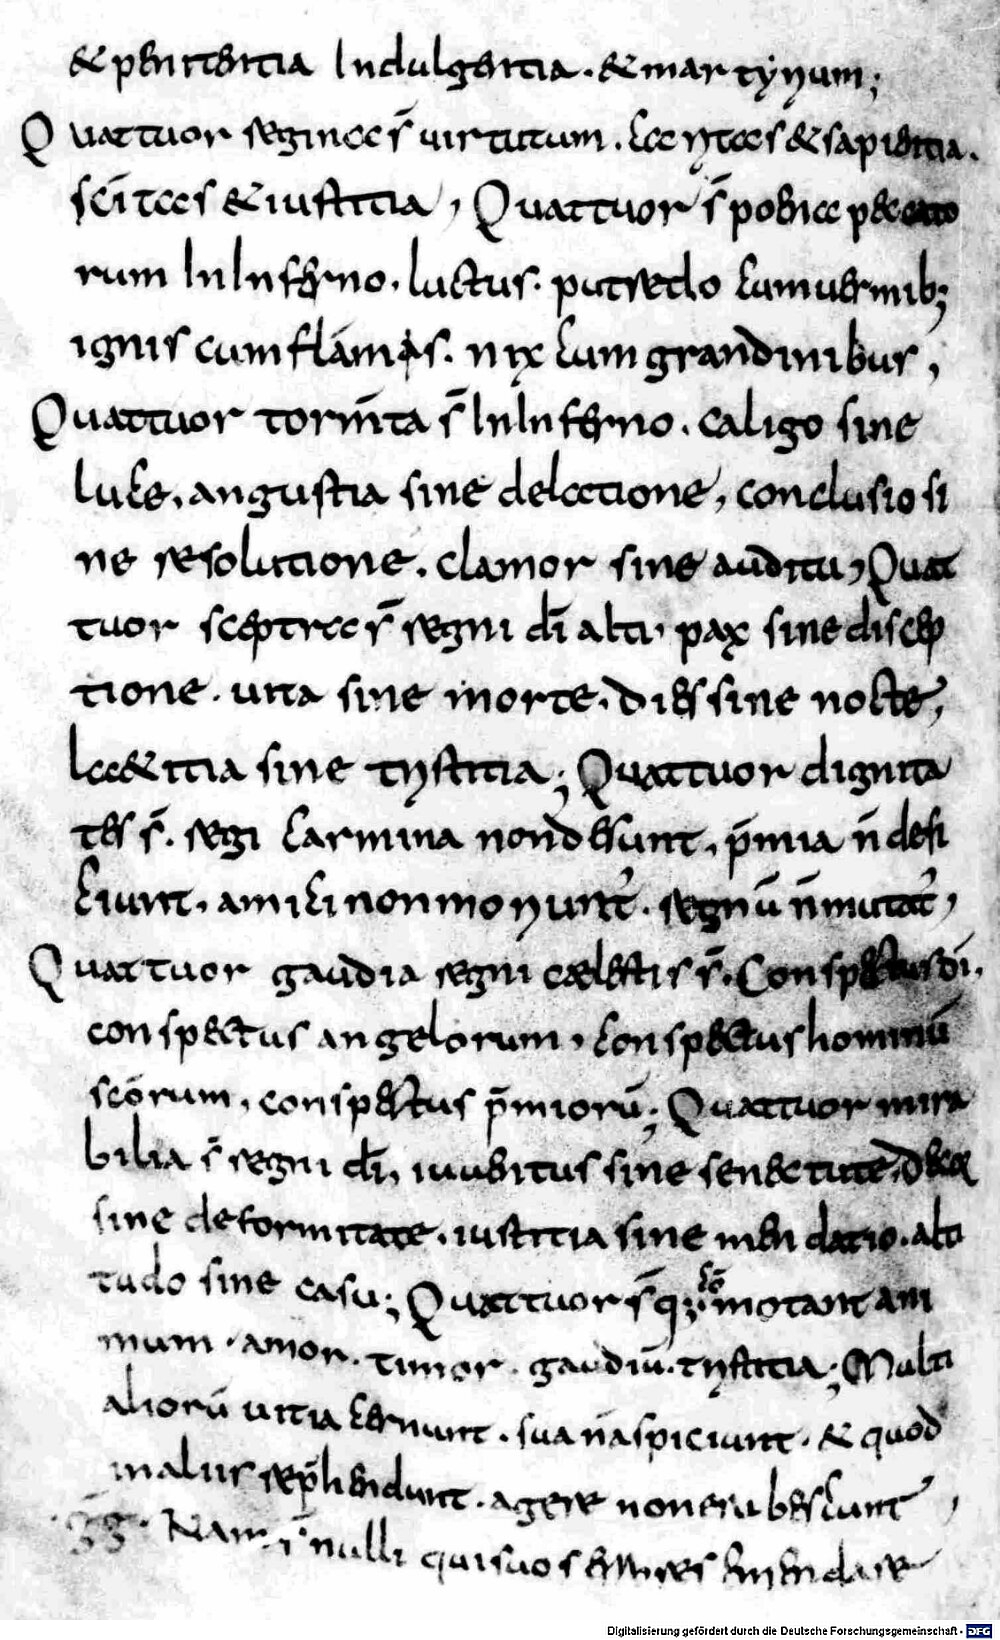 & penitentia Indulgentia. & martyrium;
Quattuor reginae s̄ virtutum. Caritas & sapientia.
sc̄itas & iustitia, Quattuor s̄ poenae peccato
rum In Inferno. luctus. putredo cum vermib;
ignis cum flām̄is. nix cum grandinibus,
Quattuor torm̄ta s̄ In Inferno. caligo sine
luce, angustia sine delectione, conclusio si
ne resolutione. clamor sine auditu, Quat
tuor sceptra s̄ regni dī alti, pax sine discep
tione. vita sine morte. dies sine nocte,
laetitia sine tristitia; Quattuor dignita
tes s̄. regi carmina non desunt, p̄mia n̄ defi
ciunt. amici non moriunt̄. regnū n̄ mutat̄,
Quattuor gaudia regni caelestis s̄. Conspectus dī.
conspectus angelorum, conspectus hominū
scōrum, conspectus p̄miorū; Quattuor mira
bilia s̄ regni dī, iuventus sine senectute, decor
sine deformitate. iustitia sine mendatio. alti
tudo sine casu; Quattuor s̄ q; cō motant ani
mum. amor. timor. gaudiū. tristitia; Multi
aliorū vitia cernunt. sua n̄ aspiciunt. & quod
malus rep̄hendunt. agere non erubescunt,
Nam nulli qui suos emendare